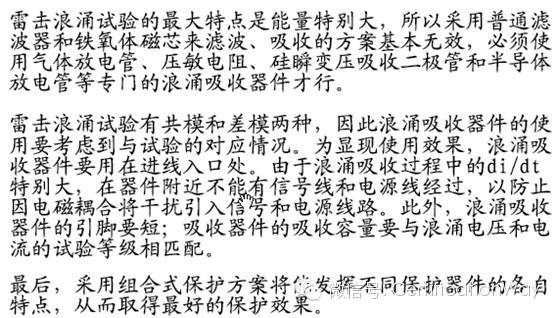 雷击浪涌试验的最大特点是能量特别大，所以采用普通滤
波器和铁氧体磁芯来滤波、吸收的方案基本无效，必须使
用气体放电管、压敏电阻、硅瞬变压吸收二极管和半导体
放电管等专门的浪涌吸收器件才行。
雷击浪涌试验有共模和差模两种，因此浪涌吸收器件的使
用要考虑到与试验的对应情况。为显现使用效果，浪涌吸
收器件要用在进线入口处。由于浪涌吸收过程中的di/dt
特别大，在器件附近不能有信号线和电源线经过，以防止
因电磁耦合将干扰引入信号和电源线路。此外，浪涌吸收
器件的引脚要短；吸收器件的吸收容量要与浪涌电压和电
流的试验等级相匹配。
最后，采用组合式保护方案将能发挥不同保护器件的各自
特点，从而取得最好的保护效果。
微信号: CertificationWay